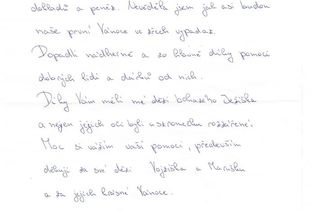 dokladů a peněz. Nevěděla jsem jak asi budou
naše první Vánoce ve třech vypadat.
Dopadli nádherně a to hlavně díky pomoci
dobrých lidí a dárků od nich.
Díky Vám měli mé děti bohatého Ježíška
a nejen jejich oči byli u stromečku rozzářené.
Moc si vážím vaší pomoci, především
děkuji za své děti Vojtíška a Marušku
a za jejich krásné Vánoce.